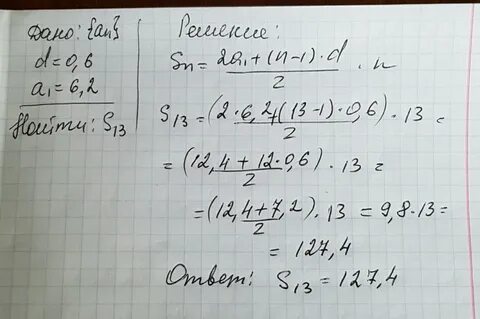 Дано: {an}
d=0,6
a₁=6,2
Найти: S₁₃
Решение:
Sn= (2a₁+(n-1)·d)/2 · n
S₁₃=(2·6,2+(13-1)·0,6)/2 · 13 =
=(12,4+12·0,6)/2 · 13 =
=(12,4+7,2)/2 · 13 = 9,8·13=
= 127,4
Ответ: S₁₃=127,4